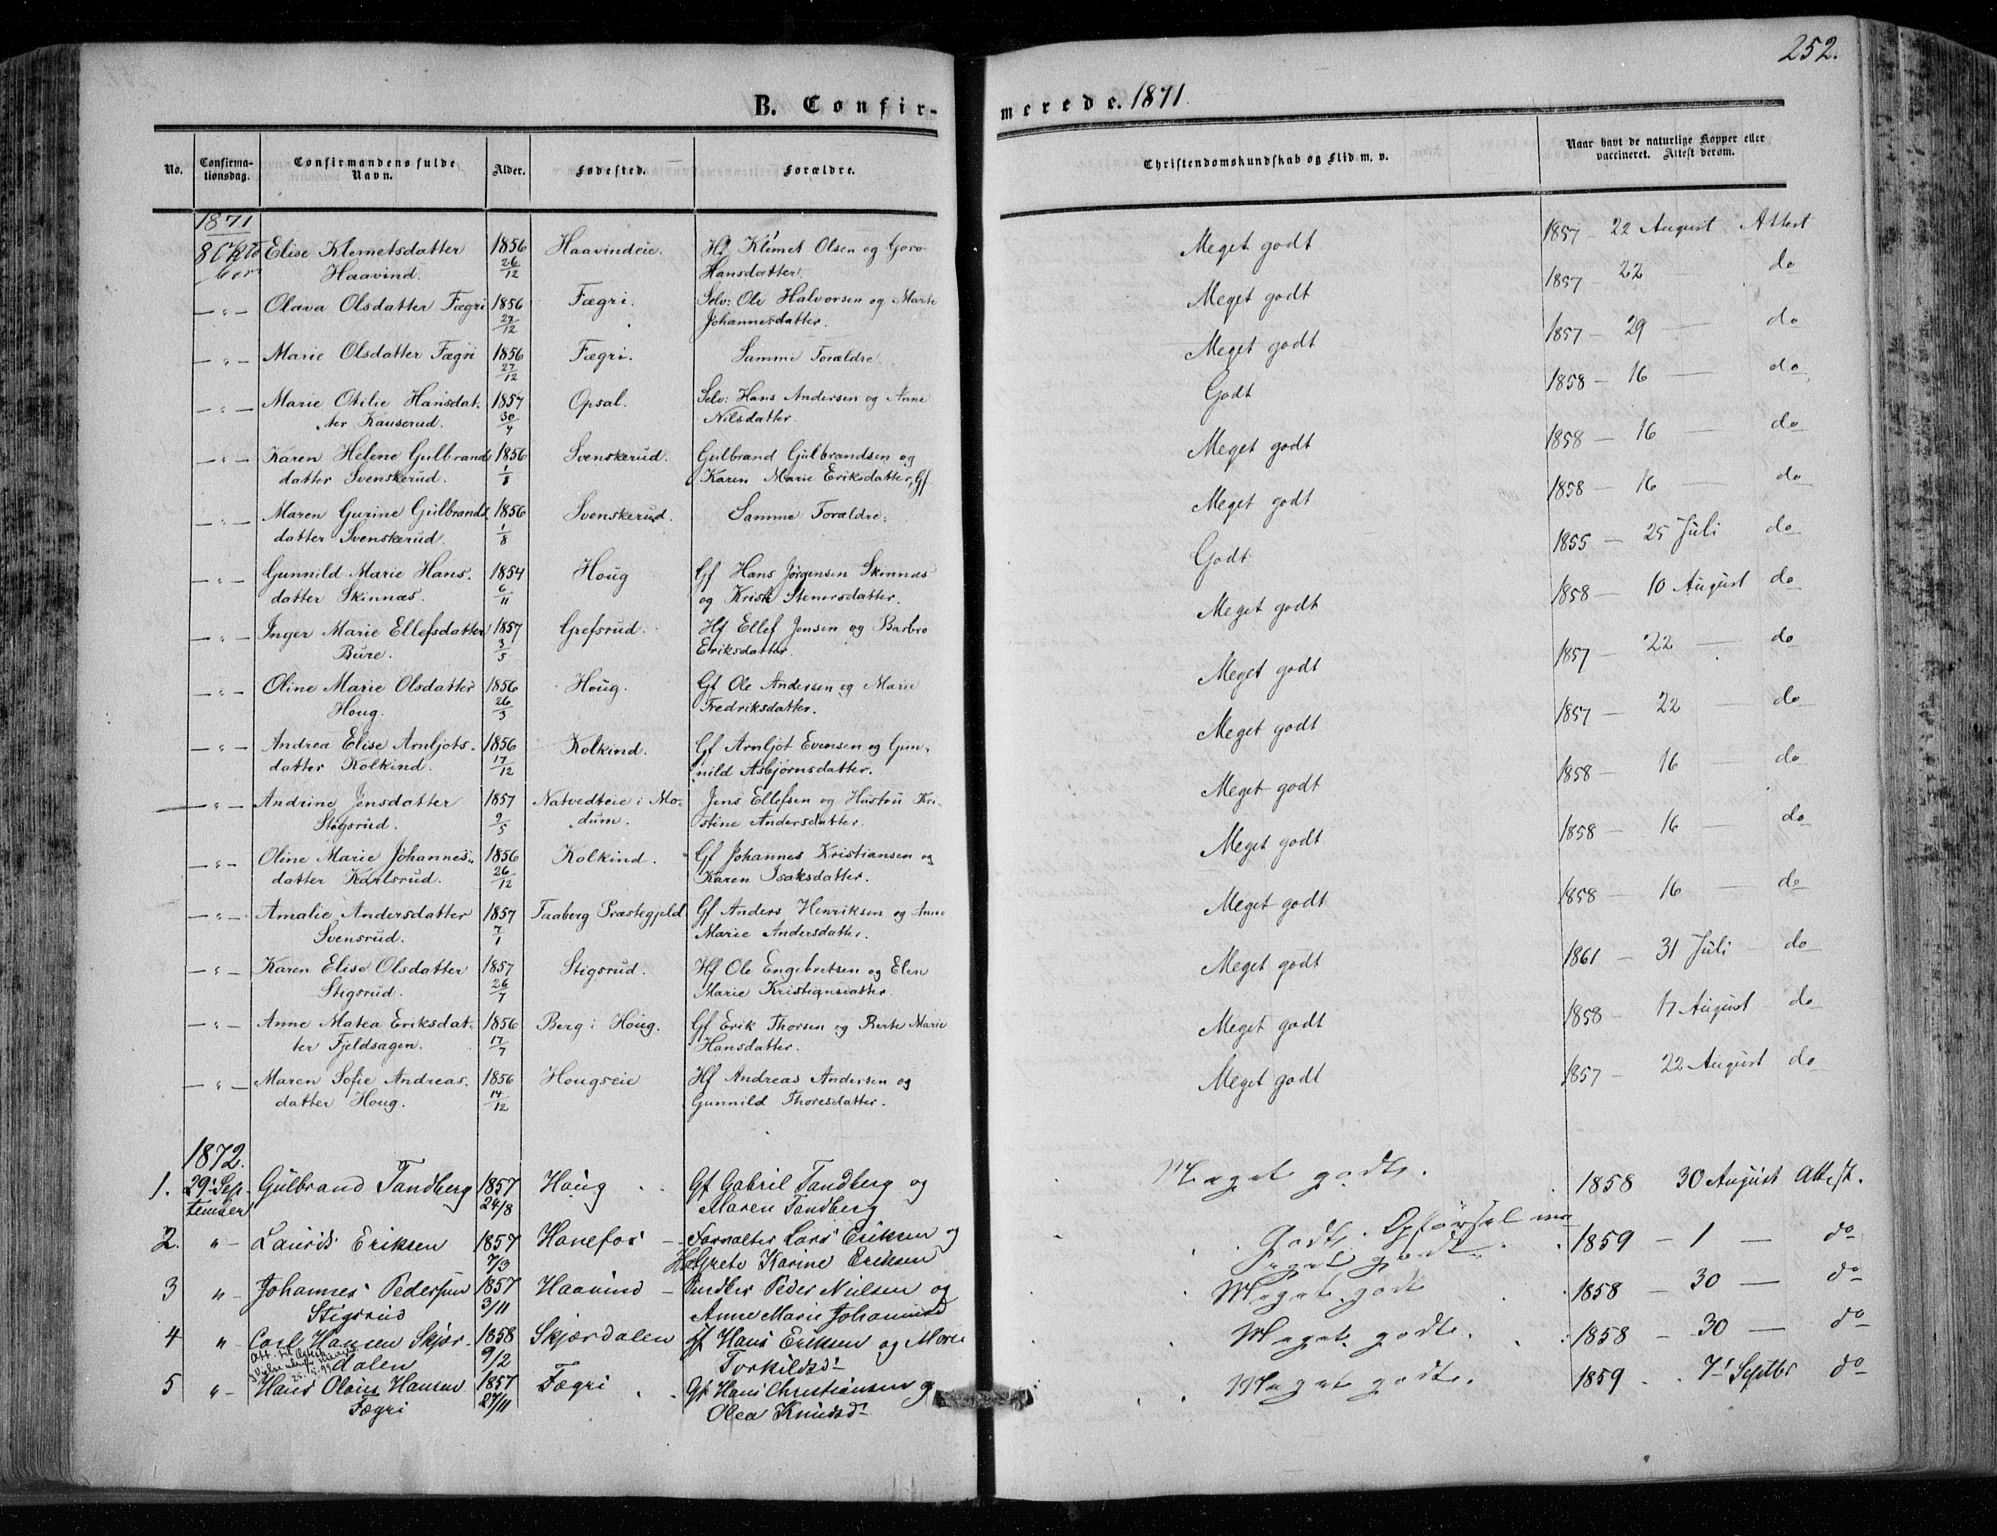 252.
B. Confir-
merede. 1871.
No.
Confirma-
tionsdag.
Confirmandens fulde
Navn.
Alder.
Fødested.
Forældre.
Christendomskundskab og Flid m. v.
Naar havt de naturlige Kopper eller
vaccineret. Attest derom.
1871
8 Okto Elise Klemetsdatter 1856 Haavindeie. Hf Klemet Olsen og Goro Meget godt 1857 - 22 August Attest
ber Haavind. 26/12 Hansdatter.
— " — Olava Olsdatter Fægri 1856 Fægri. Selv: Ole Halvorsen og Marte Meget godt 1857 - 22 — do
27/12 Johannesdatter.
— " — Marie Olsdatter Fægri 1856 Fægri. Samme Forældre Meget godt 1857 - 29 — do
27/12
— " — Marie Otilie Hansdat- 1857 Opsal. Selv: Hans Andersen og Anne Godt 1858 - 16 — do
ter Kauserud. 30/4 Nilsdatter.
— " — Karen Helene Gulbrands 1856 Svenskerud. Gulbrand Gulbrandsen og Meget godt 1858 - 16 — do
datter Svenskerud. 1/8 Karen Marie Eriksdatter, Gf
— " — Maren Gurine Gulbrands 1856 Svenskerud. Samme Forældre. Meget godt 1858 - 16 — do
datter Svenskerud. 1/8
— " — Gunnild Marie Hans- 1854 Houg Gf Hans Jørgensen Skinnæs Godt 1855 — 25 Juli do
datter Skinnæs. 6/11 og Kristi Stenersdatter.
— " — Inger Marie Ellefsdatter 1857 Grefsrud. Hf Ellef Jensen og Barbro Meget godt 1858 - 10 August do
Bure. 3/5 Eriksdatter.
— " — Oline Marie Olsdatter 1856 Houg. Gf Ole Andersen og Marie Meget godt 1857 - 22 — do
Houg. 26/3 Fredriksdatter.
— " — Andrea Elise Arnljots- 1856 Kolkind. Gf Arnljot Evensen og Gun- Meget godt 1857 - 22 — do
datter Kolkind. 17/12 nild Asbjørnsdatter.
— " — Andrine Jensdatter 1857 Natvedteie i Mo- Jens Ellefsen og Hustru Kri- Meget godt 1858 - 16 — do
Stigsrud. 9/5 dum. stine Andersdatter.
— " — Oline Marie Johannes- 1856 Kolkind. Gf Johannes Kristiansen og Meget godt 1858 - 16 — do
datter Karlsrud. 26/12 Karen Isaksdatter.
— " — Amalie Andersdatter 1857 Faaberg Præstegjeld. Gf Anders Henriksen og Anne Meget godt 1858 - 16 — do
Svensrud. 7/1 Marie Andersdatter.
— " — Karen Elise Olsdatter 1857 Stigsrud. Hf Ole Engebretsen og Elen Meget godt 1861 - 31 Juli — do
Stigsrud. 26/7 Marie Kristiansdatter.
— " — Anne Matea Eriksdat- 1856 Berg i Houg. Gf Erik Thorsen og Berte Marie Meget godt 1858 - 17 August - do
ter Fjeldsagen. 17/7 Hansdatter.
— " — Maren Sofie Andreas- 1856 Hougseie Hf Andreas Andersen og Meget godt 1857 - 22 August do
datter Houg. 14/12 Gunnild Thoresdatter.
1872.
1. 29. Sep- Gulbrand Tandberg 1857 Houg Gf Gabriel Tandberg og Meget godt. 1858 30 August Attest.
tember 24/8 Maren Tandberg
2. " Laurits Eriksen 1857 Hønefos - Forvalter Lars Eriksen og Godt. Opførsel meget godt. 1859 - 1 — do
7/3 Grete Karine Eriksen
3 " Johannes Pedersen 1857 Haavind - Peder Nielsen og Meget godt 1858 - 30 — do
Stigsrud 3/11 Anne Marie Johannesd
4 " Carl Hansen Skjær- 1858 Skjærdalen Hans Eriksen og Maren Meget godt. 1858 - 30 — do
dalen 9/2 Torkildsd.
5 " Hans Olaus Hansen 1857 Fægri Gf Hans Christiansen og Meget godt. 1859 7. Septbr do
Fægri 27/11 Olea Knudsd.